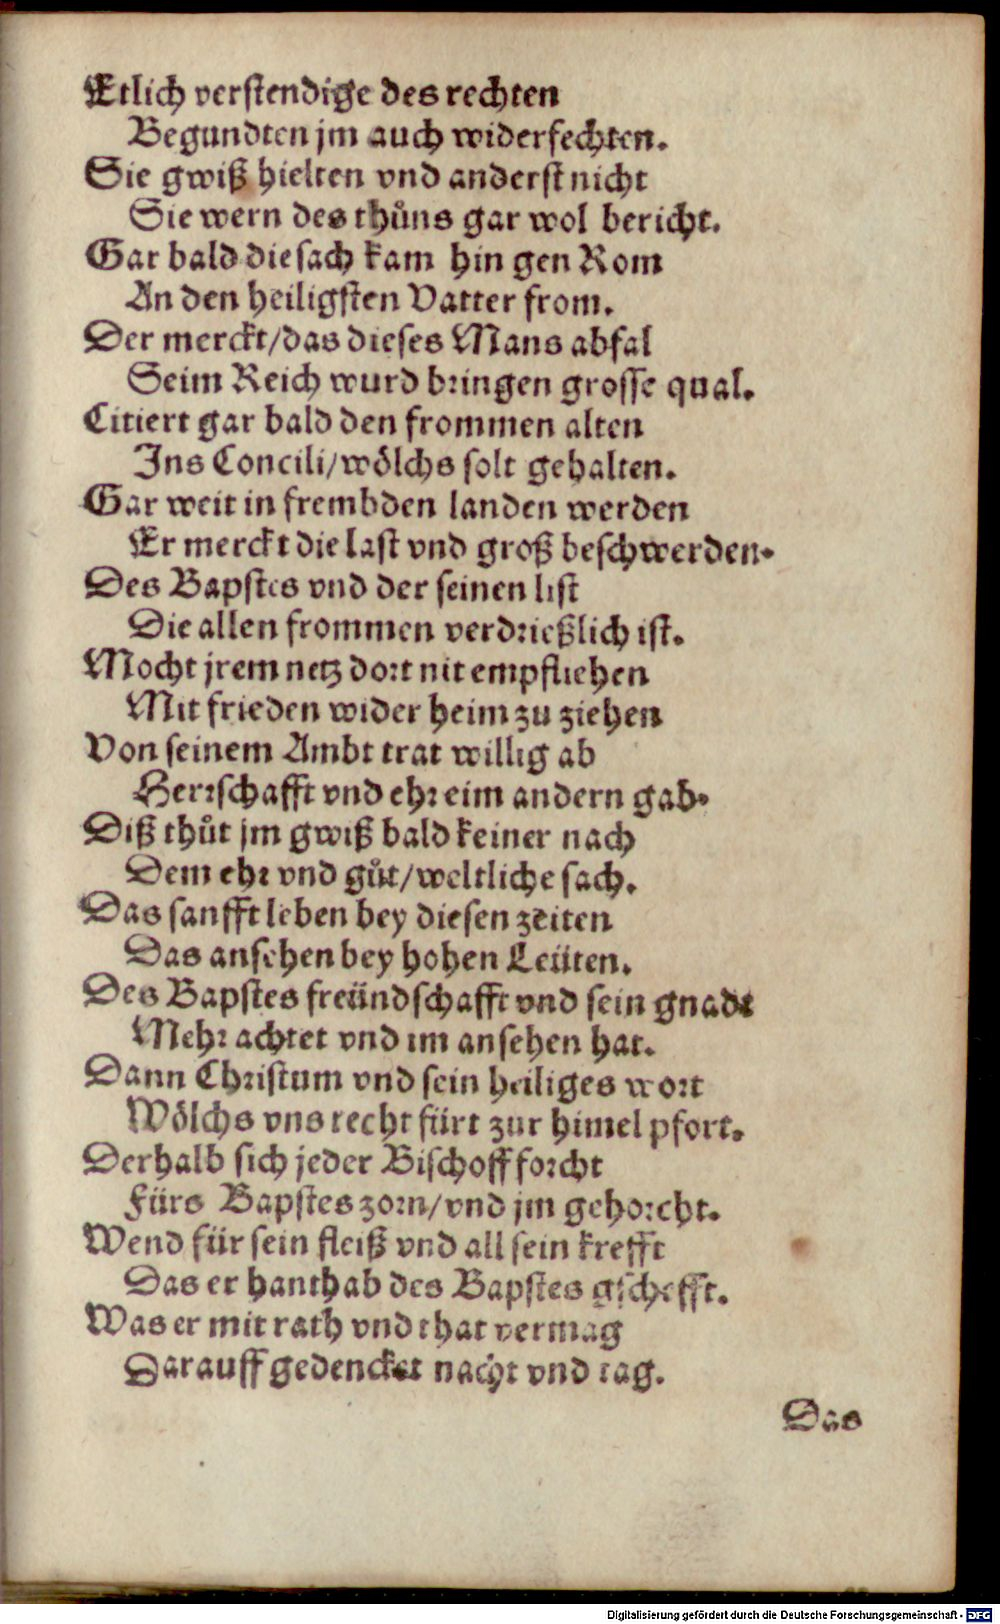 Etlich verstendige des rechten
Begundten jm auch widerfechten.
Sie gwiß hielten vnd anderst nicht
Sie wern des thůns gar wol bericht.
Gar bald die sach kam hin gen Rom
An den heiligsten Vatter from.
Der merckt/das dieses Mans abfal
Seim Reich wurd bringen grosse qual.
Citiert gar bald den frommen alten
Ins Concili/wölchs solt gehalten.
Gar weit in frembden landen werden
Er merckt die last vnd groß beschwerden.
Des Bapstes vnd der seinen list
Die allen frommen verdrießlich ist.
Mocht jrem netz dort nit empfliehen
Mit frieden wider heim zu ziehen
Von seinem Ambt trat willig ab
Herrschafft vnd ehr eim andern gab.
Diß thůt jm gwiß bald keiner nach
Dem ehr vnd gůt/weltliche sach.
Das sanfft leben bey diesen zeiten
Das ansehen bey hohen Leüten.
Des Bapstes freündschafft vnd sein gnadt
Mehr achtet vnd im ansehen hat.
Dann Christum vnd sein heiliges wort
Wölchs vns recht fürt zur himel pfort.
Derhalb sich jeder Bischoff forcht
Fürs Bapstes zorn/vnd jm gehorcht.
Wend für sein fleiß vnd all sein krefft
Das er hanthab des Bapstes gschefft.
Was er mit rath vnd that vermag
Darauff gedencket nacht vnd tag.
Das
Digitalisierung gefördert durch die Deutsche Forschungsgemeinschaft - DFG